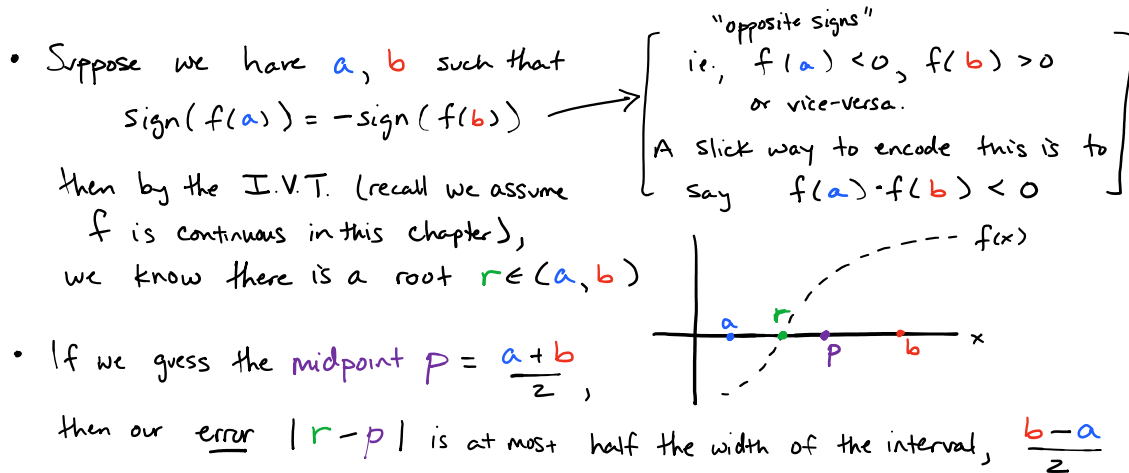 • Suppose we have a, b such that
sign(f(a)) = -sign(f(b))
then by the I.V.T. (recall we assume
f is continuous in this chapter),
we know there is a root r ∈ (a, b)
"opposite signs"
ie., f(a) < 0, f(b) > 0
or vice-versa.
A slick way to encode this is to
say f(a)·f(b) < 0
f(x)
a r p b x
• If we guess the midpoint p = \frac{a + b}{2},
then our error |r - p| is at most half the width of the interval, \frac{b - a}{2}